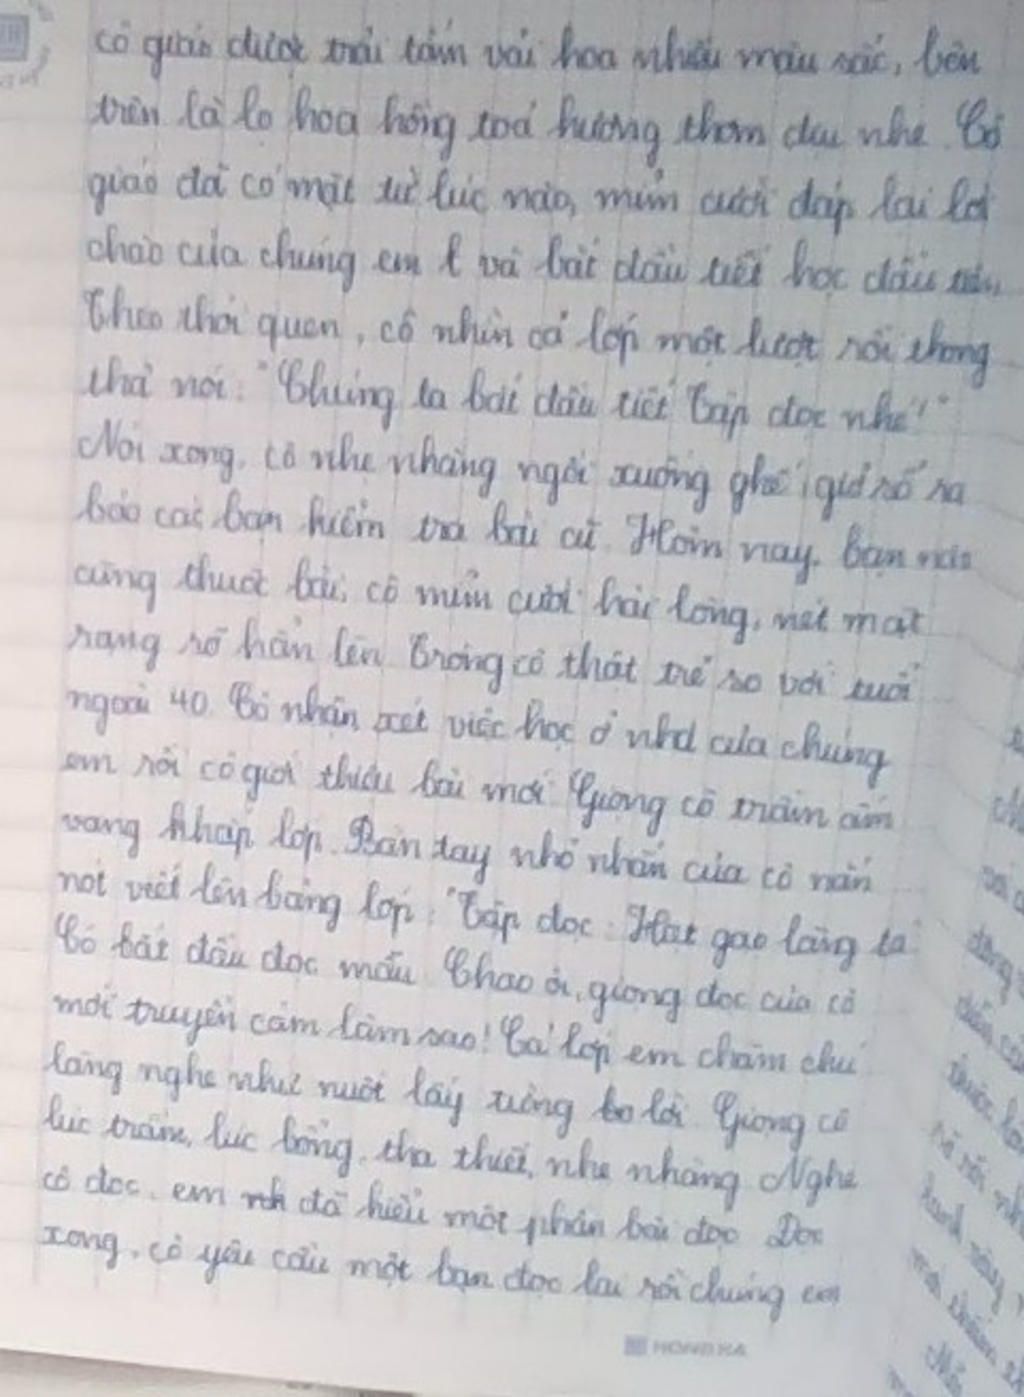 cô giáo được trải tấm vải hoa nhiều màu sắc, bên
trên là lọ hoa hồng toả hương thơm dịu nhẹ. Cô
giáo đã có mặt từ lúc nào, mỉm cười đáp lại lời
chào của chúng em và bắt đầu tiết học đầu tiên.
Theo thói quen, cô nhìn cả lớp một lượt rồi thong
thả nói: "Chúng ta bắt đầu tiết Tập đọc nhé!"
Nói xong, cô nhẹ nhàng ngồi xuống ghế, giở sổ ra
báo các bạn kiểm tra bài cũ. Hôm nay, bạn nào
cũng thuộc bài, cô mỉm cười hài lòng, nét mặt
rạng rỡ hẳn lên. Trông cô thật trẻ so với tuổi
ngoài 40. Cô nhận xét việc học ở nhà của chúng
em rồi cô giới thiệu bài mới. Giọng cô trầm ấm
vang khắp lớp. Bàn tay nhỏ nhắn của cô nắn
nót viết lên bảng lớp: "Tập đọc: Hạt gạo làng ta"
Cô bắt đầu đọc mẫu. Chao ôi, giọng đọc của cô
mới truyền cảm làm sao! Cả lớp em chăm chú
lắng nghe như nuốt lấy từng lời. Giọng cô
lúc trầm, lúc bổng, tha thiết, nhẹ nhàng. Nghe
cô đọc, em đã hiểu một phần bài đọc. Đọc
xong, cô yêu cầu một bạn đọc lại rồi chúng em
HONG HA